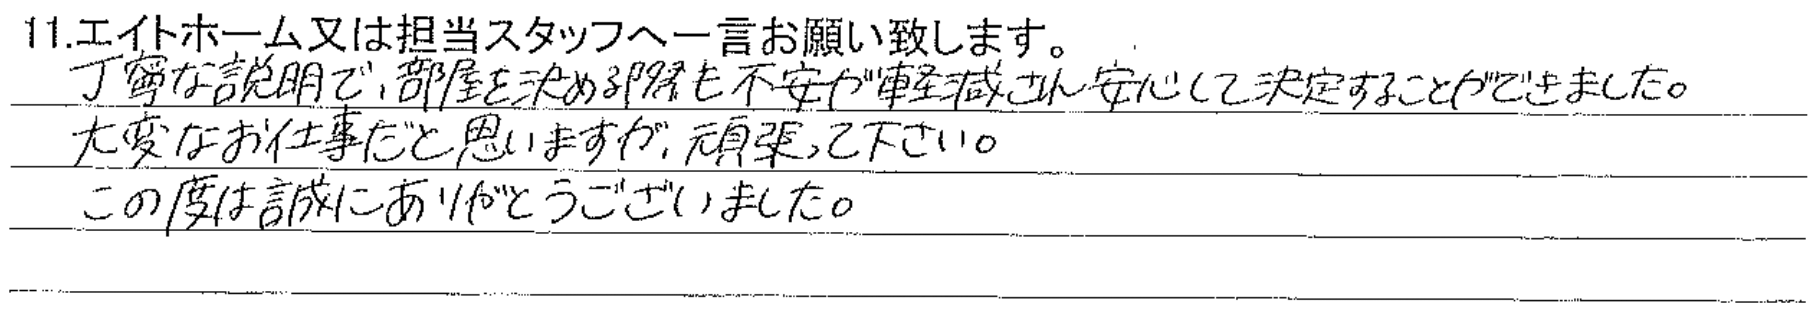 11.エイトホーム又は担当スタッフへ一言お願い致します。
丁寧な説明で、部屋を決める際も不安が軽減され安心して決定することができました。
大変なお仕事だと思いますが、頑張って下さい。
この度は誠にありがとうございました。